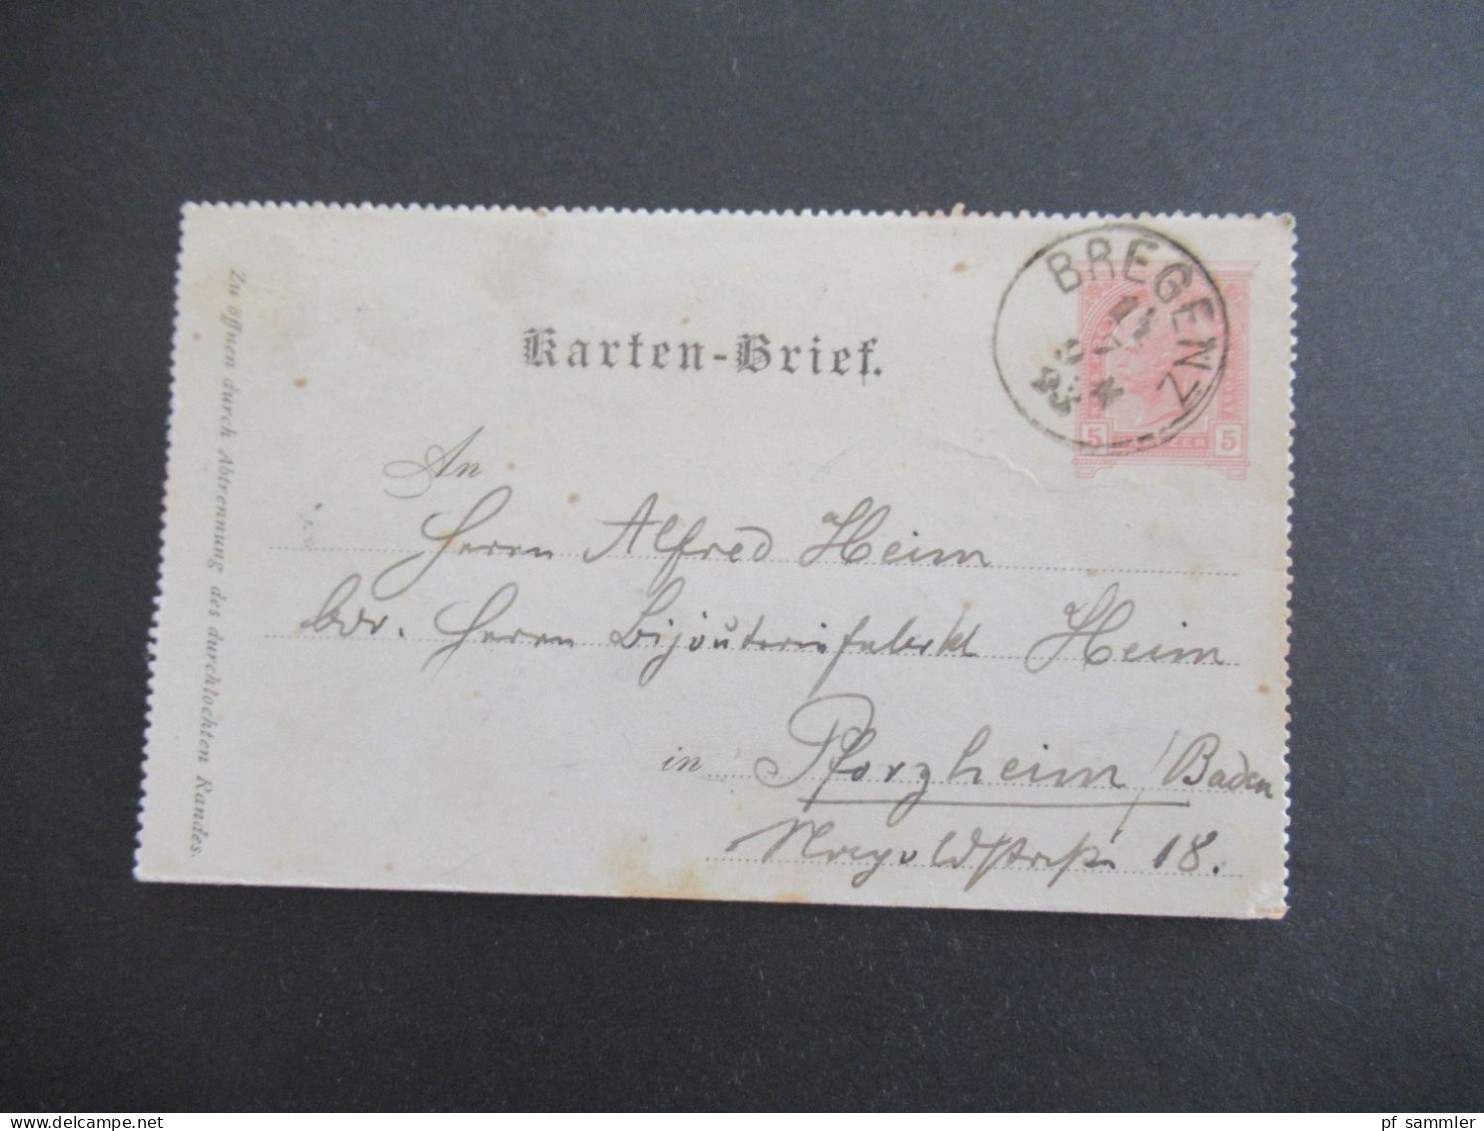 Karten-Brief.
BREGENZ
5 5
An
Herrn Alfred Heim
bdr. Herrn Bijouteriefabrkt Heim
in Pforzheim / Baden
18.
Zu öffnen durch Abtrennung des durchlochten Randes.
pf sammler